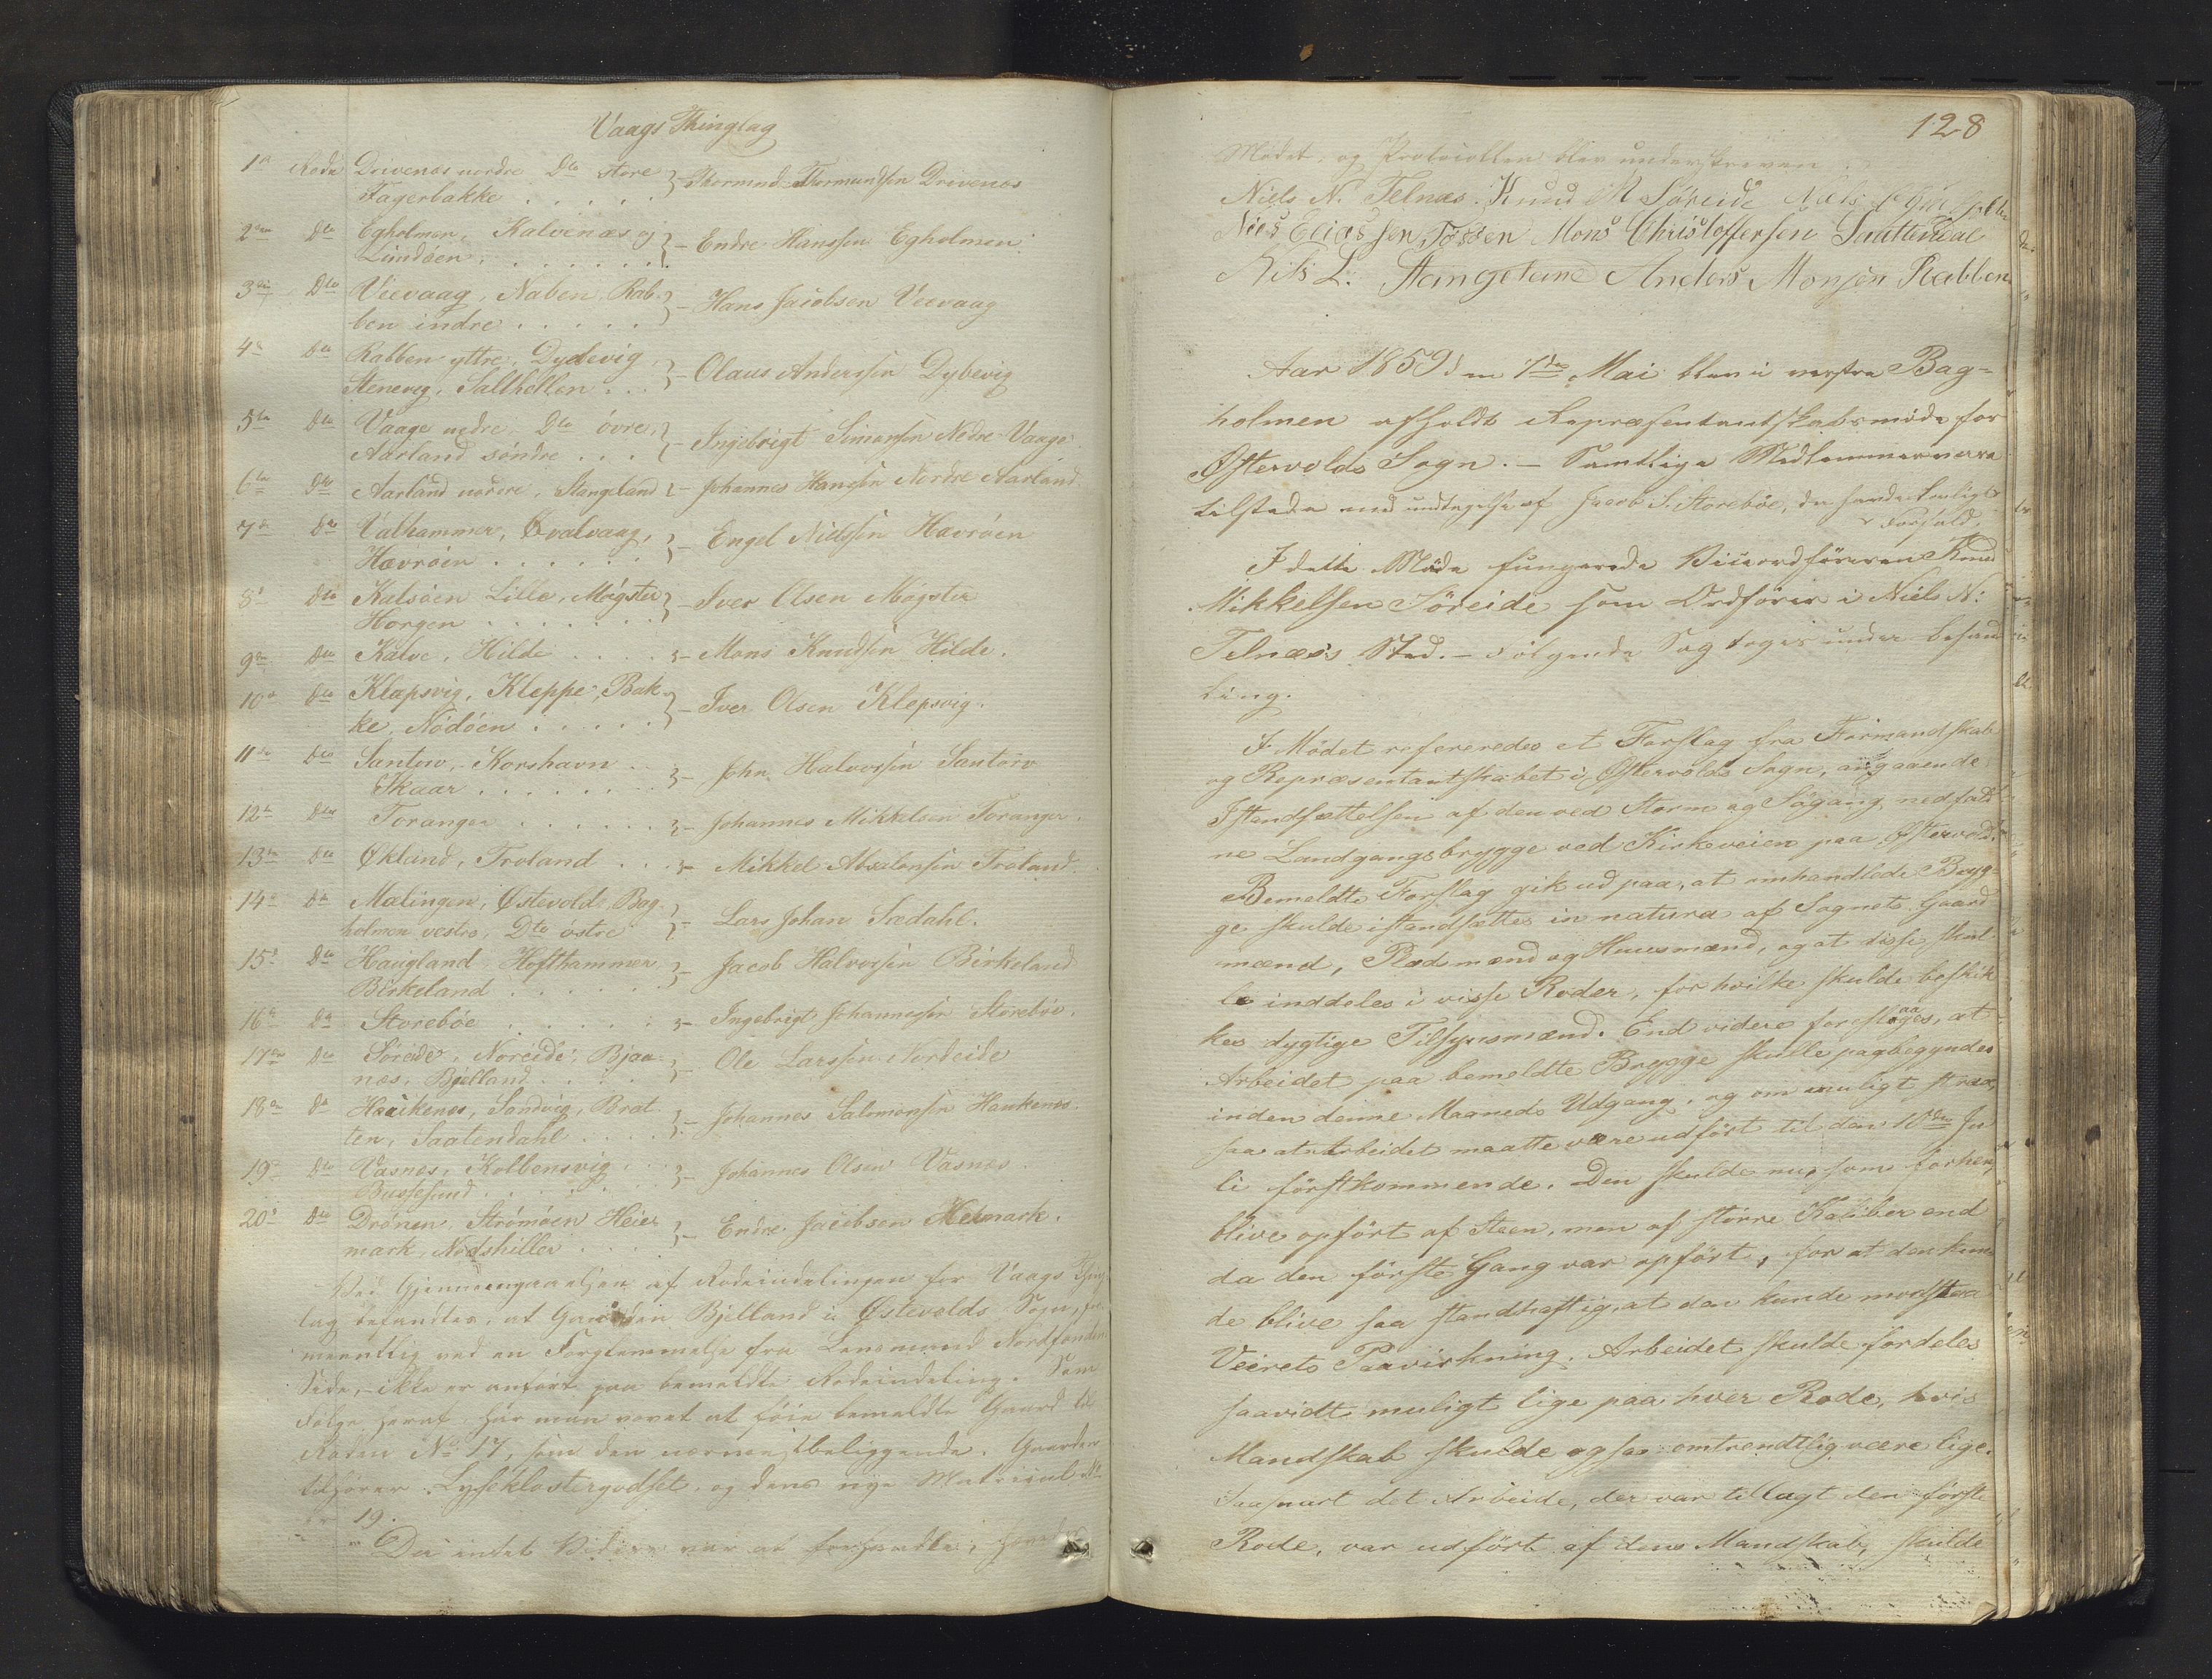 Vaags Thinglag
1ste Rode Drivenes nordre Dto store
Fagerbakke . . . . . } - Thormod Thormundsen Drivenes
2den Dto Egholmen, Kalvenæs og
Lundøen . . . . . . } - Endre Hanssen Egholmen
3die Dto Vievaag, Naben, Rab-
ben indre . . . . . } - Hans Jacobsen Vievaag
4de Dto Rabben yttre, Dybevig
Stenevig, Salthellen . . . } - Olaus Anderssen Dybevig
5te Dto Vaage nedre, Dto övre,
Aarland söndre . . . } - Ingebrigt Simonsen Nedre Vaage
6te Dto Aarland nordre, Stangeland } - Johannes Hanssen Nordre Aarland
7de Dto Valhammer, Qvalvaag,
Hevröen . . . . . . } - Engel Nielssen Havröen
8de Dto Kalsöen Lille, Mögster
Horgen . . . . . . . } - Iver Olsen Mögster
9de Dto Kalve, Hilde . . . . } - Mons Knudsen Hilde.
10de Dto Klepsvig, Kleppe, Bak-
ke, Nödöen . . . . . } - Iver Olsen Klepsvig.
11te Dto Santorv, Korshavn . .
Skaar . . . . . . . . } - John Halvorsen Santorv
12te Dto Toranger . . . . . . } - Johannes Mikkelsen Toranger.
13de Dto Økland, Troland . . . } - Mikkel Absalonsen Troland.
14de Dto Mælingen, Østevold, Bag-
holmen vestre, Dto østre } - Lars Johan Sædahl.
15de Dto Haugland Hofthammer
Birkeland . . . . . . } - Jacob Halvorsen Birkeland
16de Dto Storebøe . . . . . . } - Ingebrigt Johannessen Storebøe.
17de Dto Söreide, Noreide, Bjaa-
nes, Bjelland . . . . } - Ole Larssen Nordeide
18de Dto Haukenes, Sandvig, Brat-
ten, Saatendahl . . . . } - Johannes Salomonsen Haukenes.
19de Dto Vasnes, Kolbensvig . . .
Bussesund . . . . . . } - Johannes Olsen Vasnes.
20de Dto Drönen, Strömöen Heier-
mark, Nodshiller . . . } - Endre Jacobsen Heimark.
Ved Gjennemgaaelsen af Rodeindelingen for Vaags Thing-
lag befandtes, at Gaarden Bjelland i Østevolds Sogn, for-
meentlig ved en Forglemmelse fra Lensmand Nordfonden
Side, - ikke er anført paa bemeldte Rodeindeling. Som
Følge heraf har man vovet at föie bemeldte Gaard til
Roden No 17, som den nærmestbeliggende. Gaarden
tilhører Lyseklostergodset, og dens nye Matricul No
er 19.
Da intet Videre var at forhandle,

128
Mødet, og Protocollen blev underskreven
Niels N. Telnæs. Knud M Søreide
Niels Eliassen Fossen Mons Christoffersen Sautendal
Nils L. Stangeland Anders Monsen Rabben

Aar 1859 den 7de Mai blev i vestre Bag-
holmen afholdt Repræsentantskabsmøde for
Østervolds Sogn. - Samtlige Medlemmer vare
tilstede med undtagelse af Jacob S. Storebøe, der havde lovligt
Forfald.
I dette Møde fungerede Viceordföreren Knud
Mikkelsen Söreide som Ordförer i Niels N:
Telnæs's Sted. - Følgende Sag toges under behand-
ling.
I Mödet refereredes et Forslag fra Formandskab
og Repræsentantskabet i Østervolds Sogn, angaaende
Istandsættelsen af den ved Storm og Søgang nedfald-
ne Landgangsbrygge ved Kirkeveien paa Østervold.
Bemeldte Forslag gik ud paa, at omhandlede Bryg-
ge skulde istandsættes in natura af Sognets Gaard-
mænd, Pladsmænd og Huusmænd, og at disse skul-
le inddeles i visse Roder, for hvilke skulde beskik-
kes dygtige Tilsynsmænd. End videre foresloges, at
Arbeidet paa bemeldte Brygge skulle paabegyndes
inden denne Maaneds Udgang, og om muligt strax,
saa at Arbeidet maatte være udfört til den 10de Ju-
li förstkommende. Den skulde nu, som forhen,
blive opfört af Steen, men af större Kaliber end
da den förste Gang var opfört, for at den kun-
de blive saa standhaftig, at den kunde modstaa
Veirets Paavirkning. Arbeidet skulde fordeles
saavidt muligt lige paa hver Rode, hvis
Mandskab skulde ogsaa omtrendtlig være lige.
Saasnart det Arbeide, der var tillagt den förste
Rode, var udfört af dens Mandskab, skulde